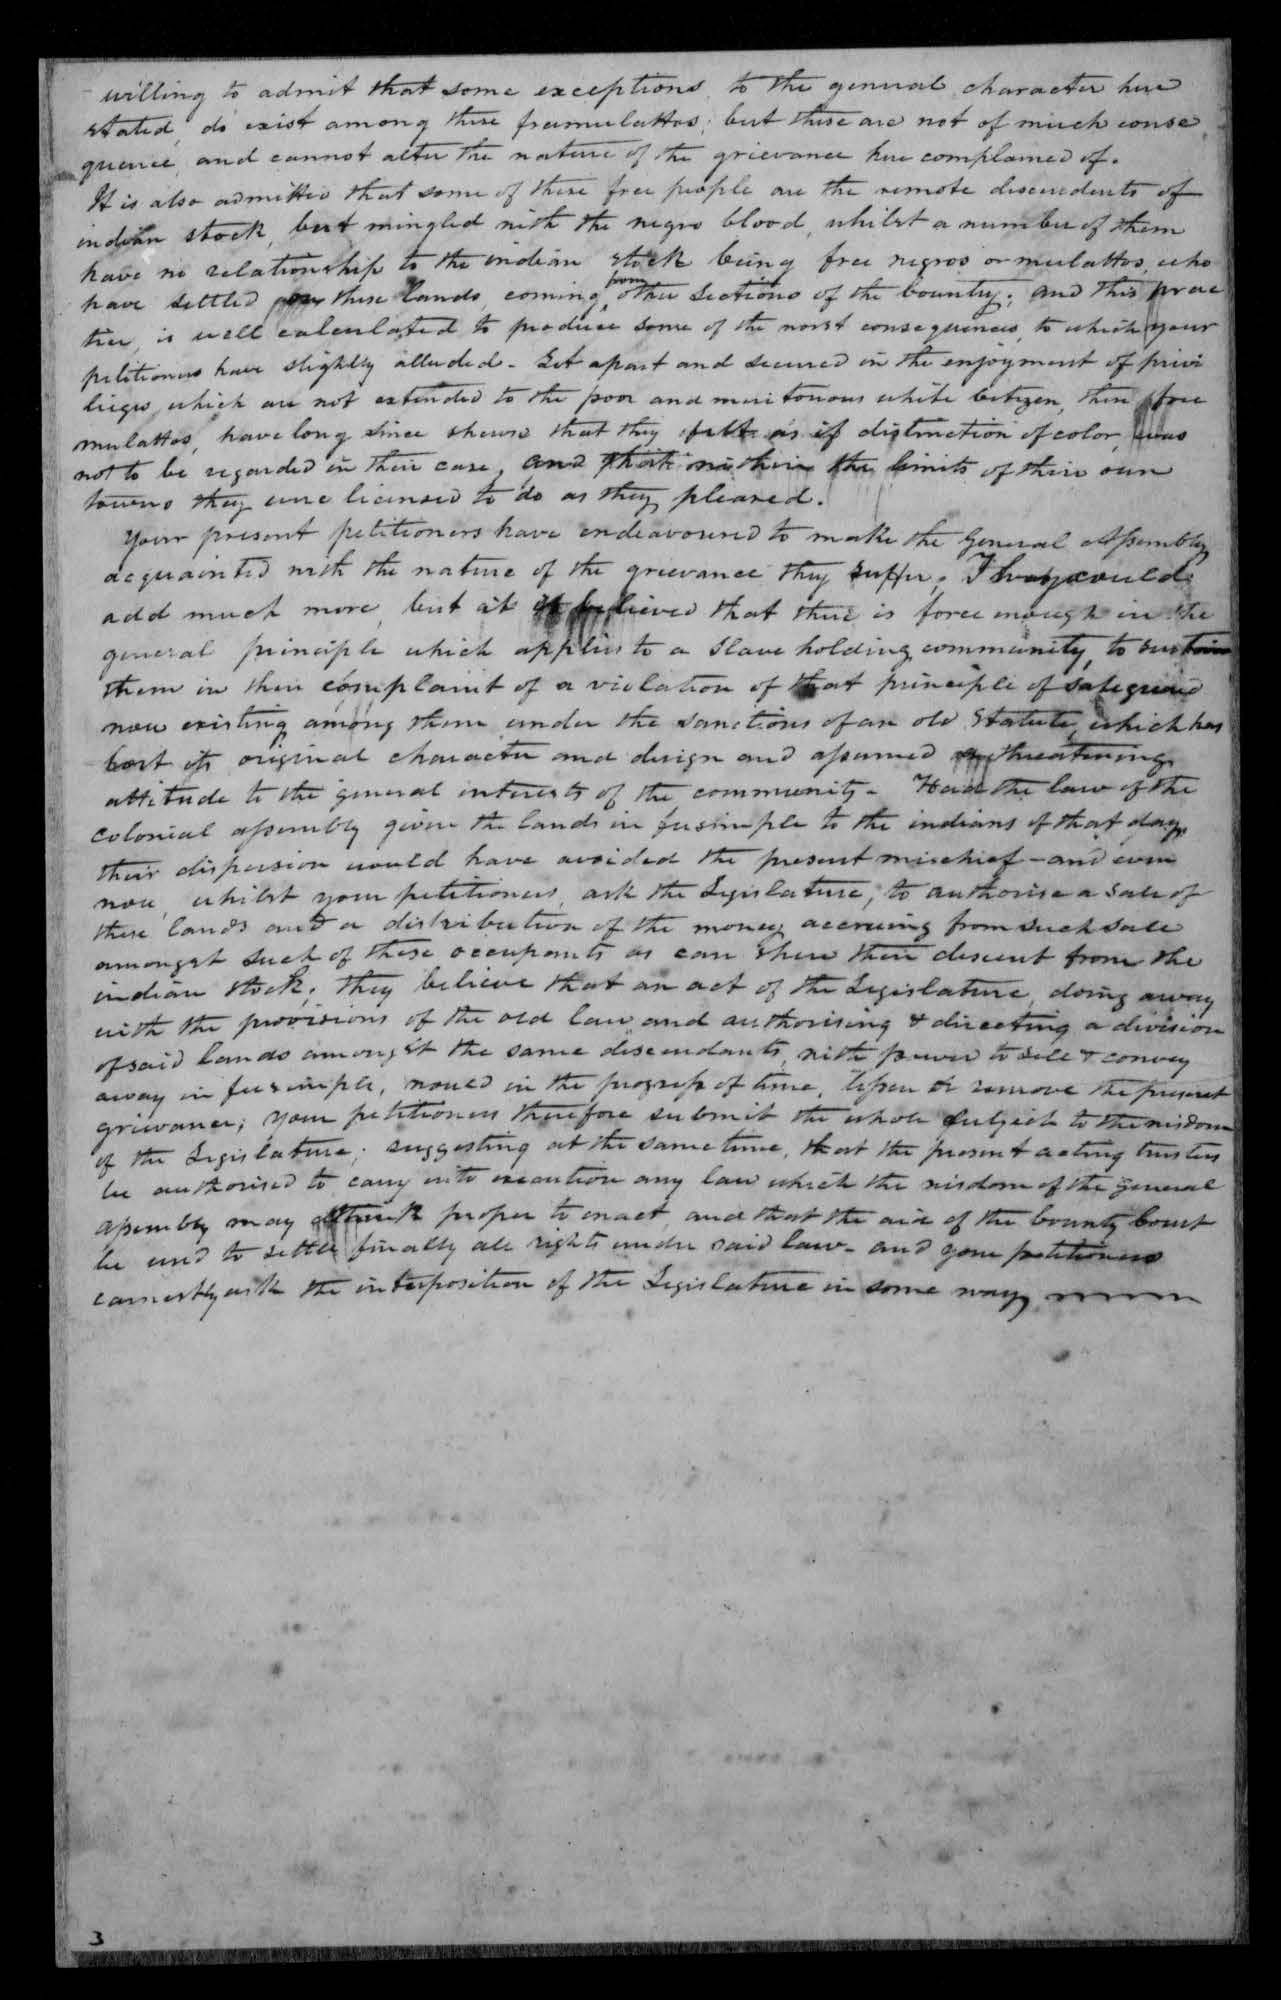 willing to admit that some exceptions, to the general character here
stated, do exist among these free mulattos; but these are not of much conse
quence, and cannot alter the nature of the grievance here complained of.
It is also admitted that some of these free people are the remote descendents of
indian stock, but mingled with the negro blood, whilst a number of them
have no relationship to the indian stock being free negros or mulattos, who
have settled on these lands, coming from other sections of the County; and this prac
tice, is well calculated to produce some of the worst consequences, to which your
petitioners have slightly alluded - Set apart and secured in the enjoyment of privi
liges, which are not extended to the poor and meritorious white Citizen, these free
mulattos, have long since shewn that they felt as if distinction of color, was
not to be regarded in their case, and that within the limits of their own
towns they were licensed to do as they pleased.
Your present petitioners have endeavoured to make the General Assembly
acquainted with the nature of the grievance they suffer, They could
add much more, but it is believed that there is force enough in the
general principle which applies to a slave holding community, to sustain
them in their complaint of a violation of that principle of safeguard
now existing among them under the sanctions of an old Statute, which has
lost its original character and design and assumed a threatening
attitude to the general interests of the community - Had the law of the
colonial assembly given the lands in fee simple to the indians of that day,
their dispersion would have avoided the present mischief - and even
now, whilst your petitioners, ask the Legislature, to authorise a sale of
these lands and a distribution of the money accruing from such sale
amongst such of these occupants as can shew their descent from the
indian stock; they believe that an act of the Legislature, doing away
with the provisions of the old law and authorising & directing a division
of said lands amongst the same descendants, with power to sell & convey
away in fee simple, would in the progress of time, lessen or remove the present
grievance; your petitioners therefore submit the whole subject to the wisdom
of the Legislature; suggesting at the same time, that the present acting trustees
be authorised to carry into execution any law which the wisdom of the general
assembly may think proper to enact, and that the aid of the County Court
be used to settle finally all rights under said law - and your petitioners
earnestly ask the interposition of the Legislature in some way
3